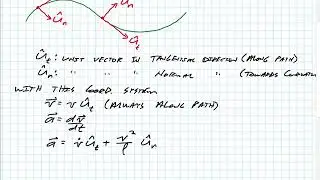 û_n
û_n
û_t
û_t : UNIT VECTOR IN TANGENTIAL DIRECTION (ALONG PATH)
û_n : " " " NORMAL " (TOWARDS
WITH THIS COORD. SYSTEM
v⃗ = v û_t (ALWAYS ALONG PATH)
a⃗ = dv⃗/dt
a⃗ = v̇ û_t + v²/ρ û_n